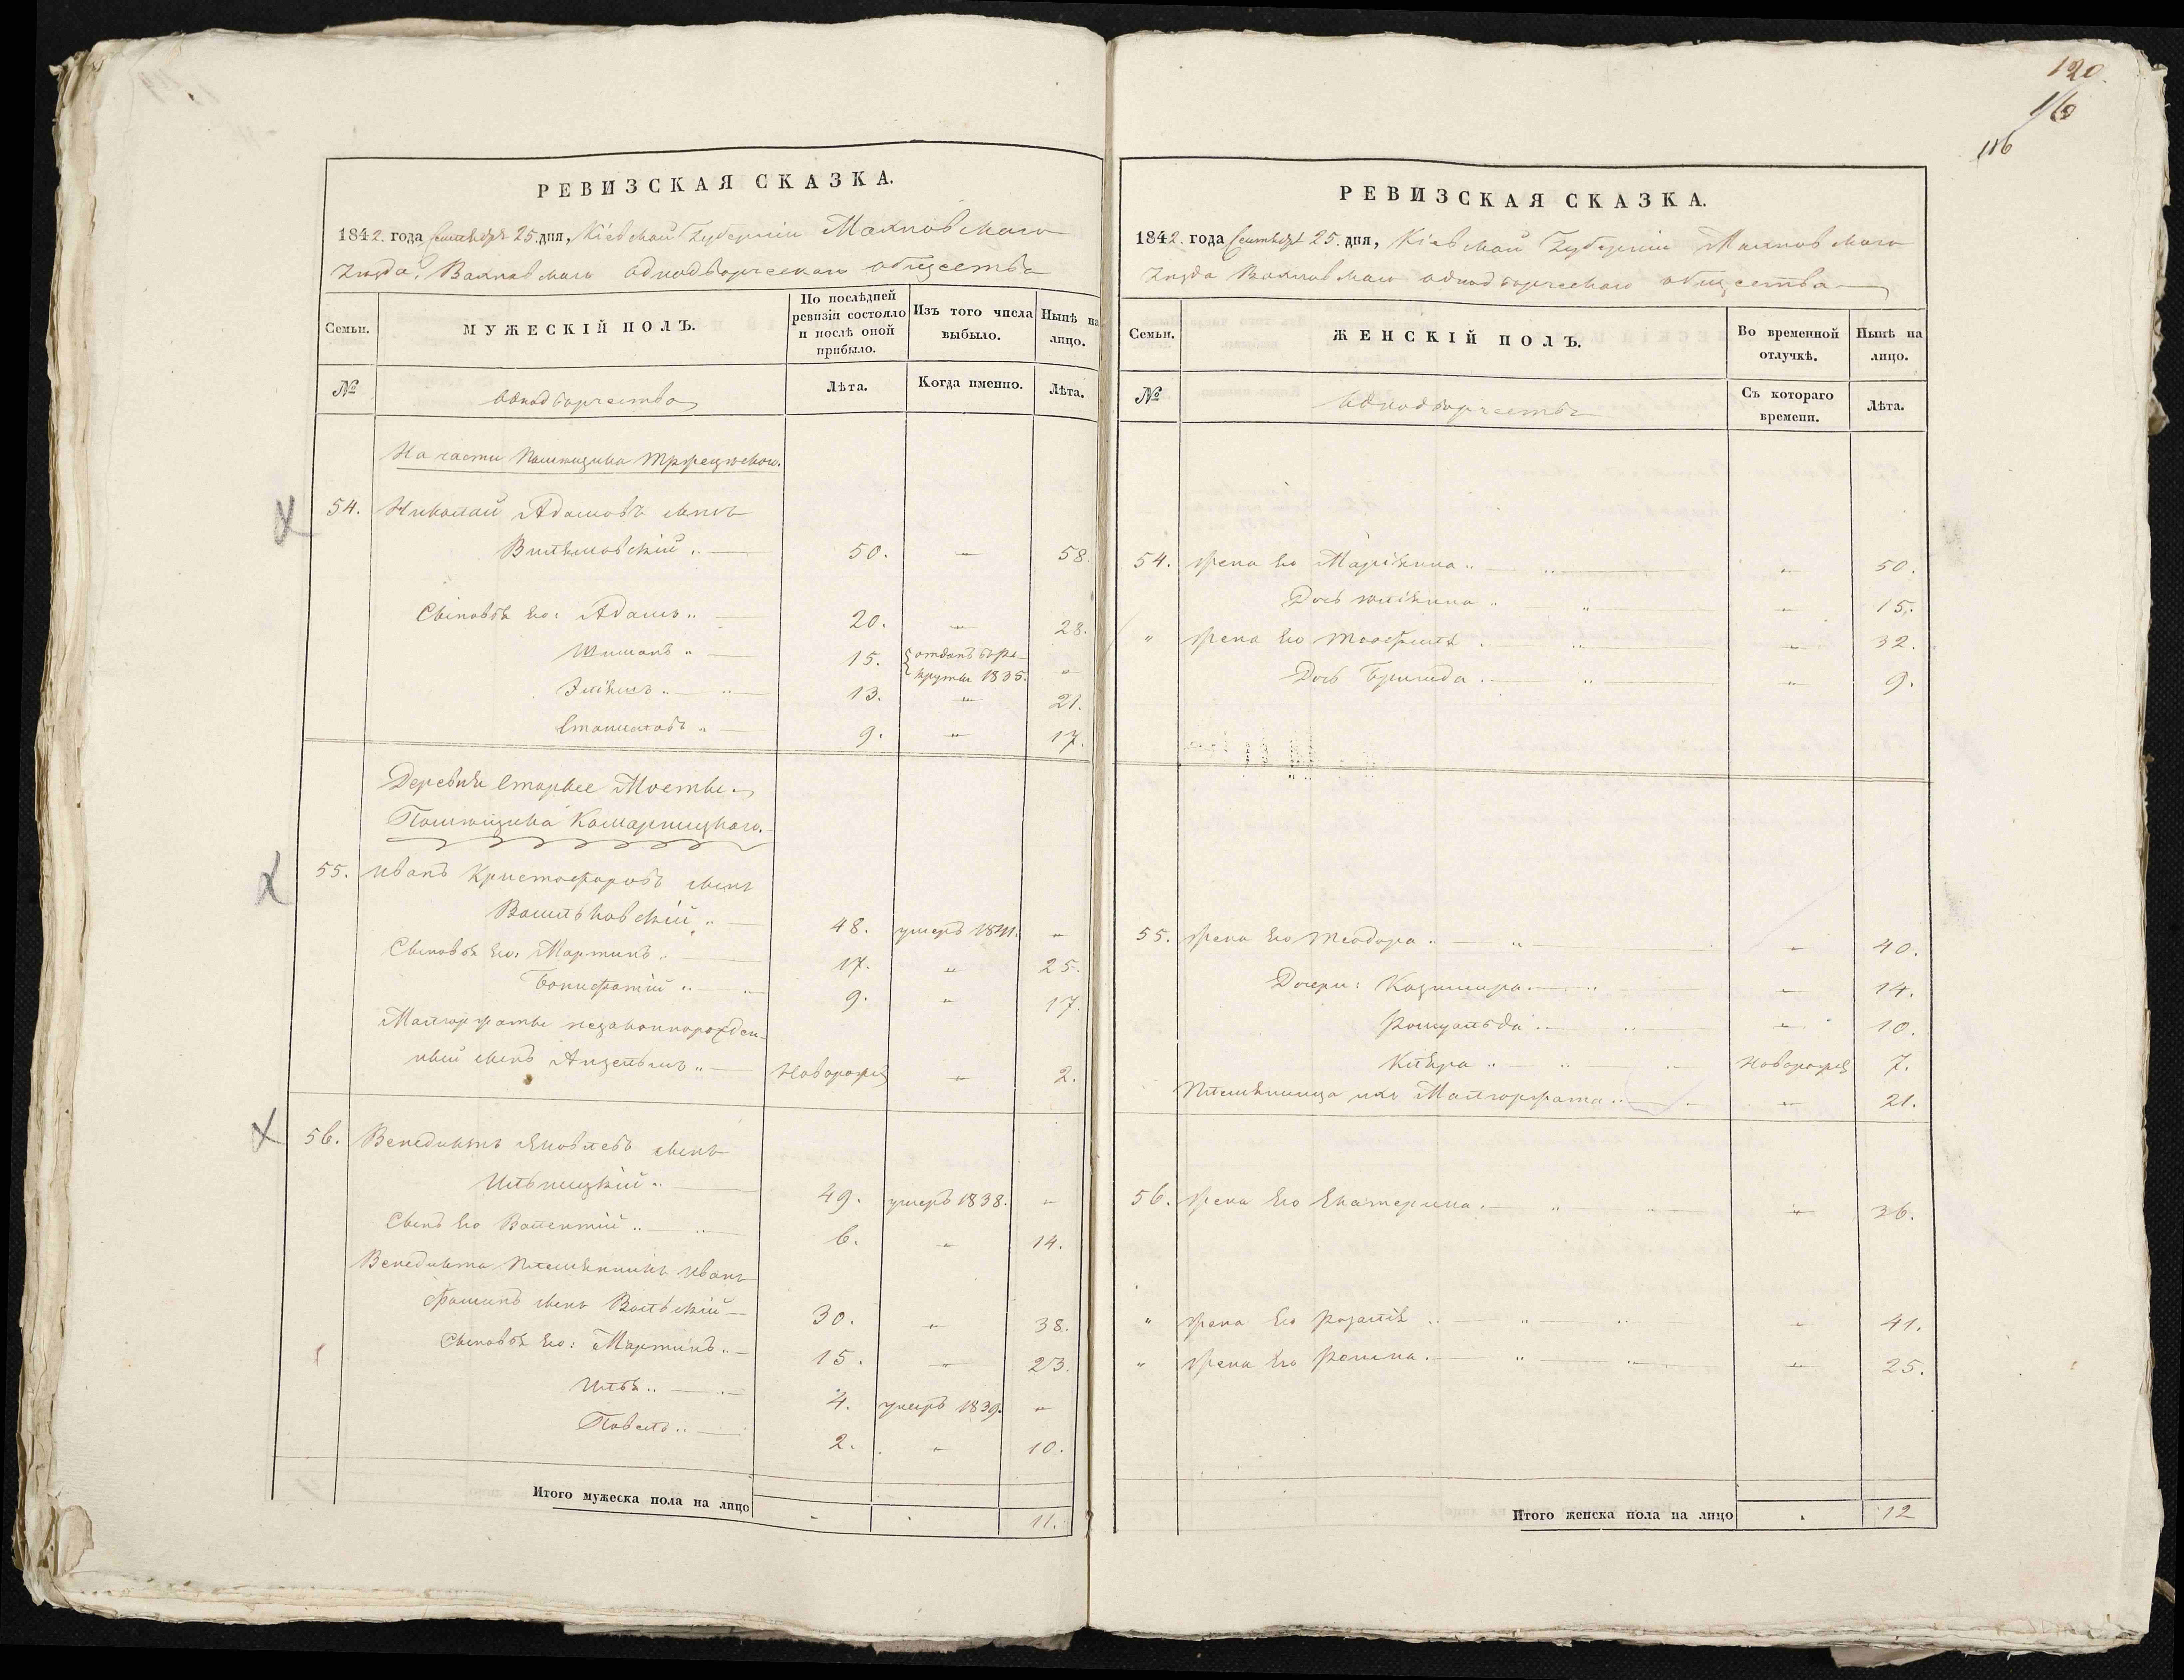 120.
116
116
РЕВИЗСКАЯ СКАЗКА.
1842. года Сентября 25. дня, Кіевской Губерніи Махновскаго
уезда, Вахновскаго однодворческаго общества
Семьи. МУЖЕСКІЙ ПОЛЪ. По послѣдней ревизіи состояло и послѣ оной прибыло. Изъ того числа выбыло. Нынѣ на лицо.
№ однодворчества Лѣта. Когда именно. Лѣта.
На части помещика
54. Николай Адамовъ сынъ
50. — 58.
Сыновья его: Адамъ 20. — 28.
15. отданъ въ рекруты 1835. „
13. „ 21.
Станиславъ 9. „ 17.
Деревни Старые Мосты
Помещика Комарницкаго.
55. Иванъ Христофоровъ сынъ
Васильковскій 48. умеръ 1841. „
Сыновья его: Мартинъ 17. „ 25.
Бонифатій 9. „ 17.
Малгоржаты незаконнорожден-
ный сынъ Анзельмъ Новорожд „ 2.
56. Венедиктъ Яковлевъ сынъ
Ильницкій 49. умеръ 1838. „
Сынъ его Валентій 6. „ 14.
Венедикта племянникъ Иванъ
Фоминъ сынъ Вольскій 30. „ 38.
Сыновья его: Мартинъ 15. „ 23.
Илья 4. умеръ 1839. „
Павелъ 2. „ 10.
Итого мужеска пола на лицо 11.
РЕВИЗСКАЯ СКАЗКА.
1842. года Сентября 25. дня, Кіевской Губерніи Махновскаго
уезда Вахновскаго однодворческаго общества
Семьи. ЖЕНСКІЙ ПОЛЪ. Во временной отлучкѣ. Нынѣ на лицо.
№ однодворчества Съ котораго времени. Лѣта.
54. жена его Маріянна „ 50.
Дочь Юліянна „ 15.
„ жена его Теофиля „ 32.
Дочь Бригида „ 9.
55. жена его Теодора „ 40.
Дочери: Казимира „ 14.
Ромуальда „ 10.
Кляра Новорожд 7.
Племянница ихъ Малгоржата „ 21.
56. жена его Екатерина „ 36.
„ жена его Розалія „ 41.
„ жена его Регина „ 25.
Итого женска пола на лицо 12